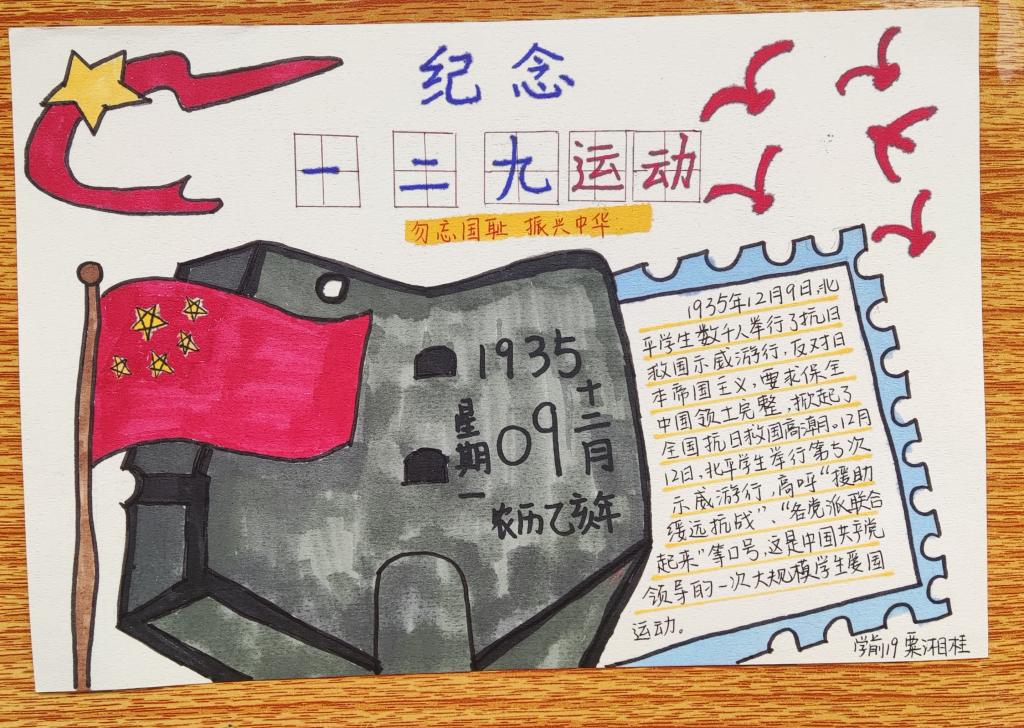 纪念
一二九运动
勿忘国耻 振兴中华
1935
十二月
09
星期一
农历乙亥年
1935年12月9日,北
平学生数千人举行了抗日
救国示威游行,反对日
本帝国主义,要求保全
中国领土完整,掀起了
全国抗日救国高潮。12月
12日,北平学生举行第5次
示威游行,高呼“援助
绥远抗战”、“各党派联合
起来”等口号,这是中国共产党
领导的一次大规模学生爱国
运动。
学前19 粟湘桂